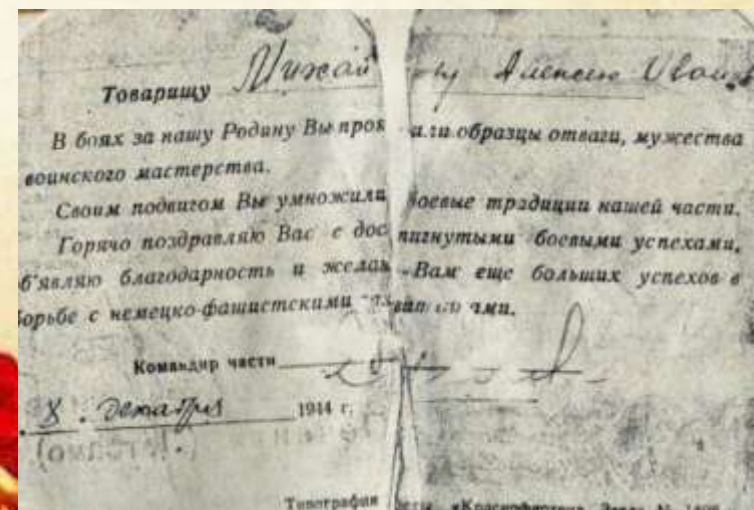 Товарищу Михай ну Алексею Иван
В боях за нашу Родину Вы проя или образцы отваги, мужества
воинского мастерства.
Своим подвигом Вы умножили боевые традиции нашей части.
Горячо поздравляю Вас с дос тигнутыми боевыми успехами,
б'являю благодарность и желаю Вам еще больших успехов в
орьбе с немецко-фашистскими
Командир части
8. декабря 1944 г.
Типография «Краснофлотец» Заказ №